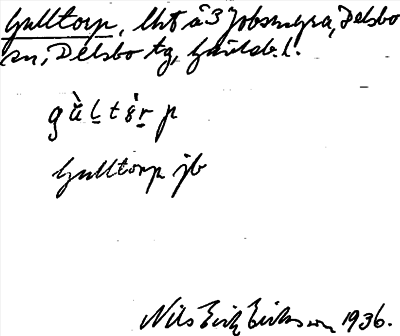 Gulltorp, lht å 3 Jobsmyra, Delsbo
sn, Delsbo tg, Gävleb. l.
gùḷtọ̀ṛp
Gulltorp jb
Nils Erik Eriksson 1936.